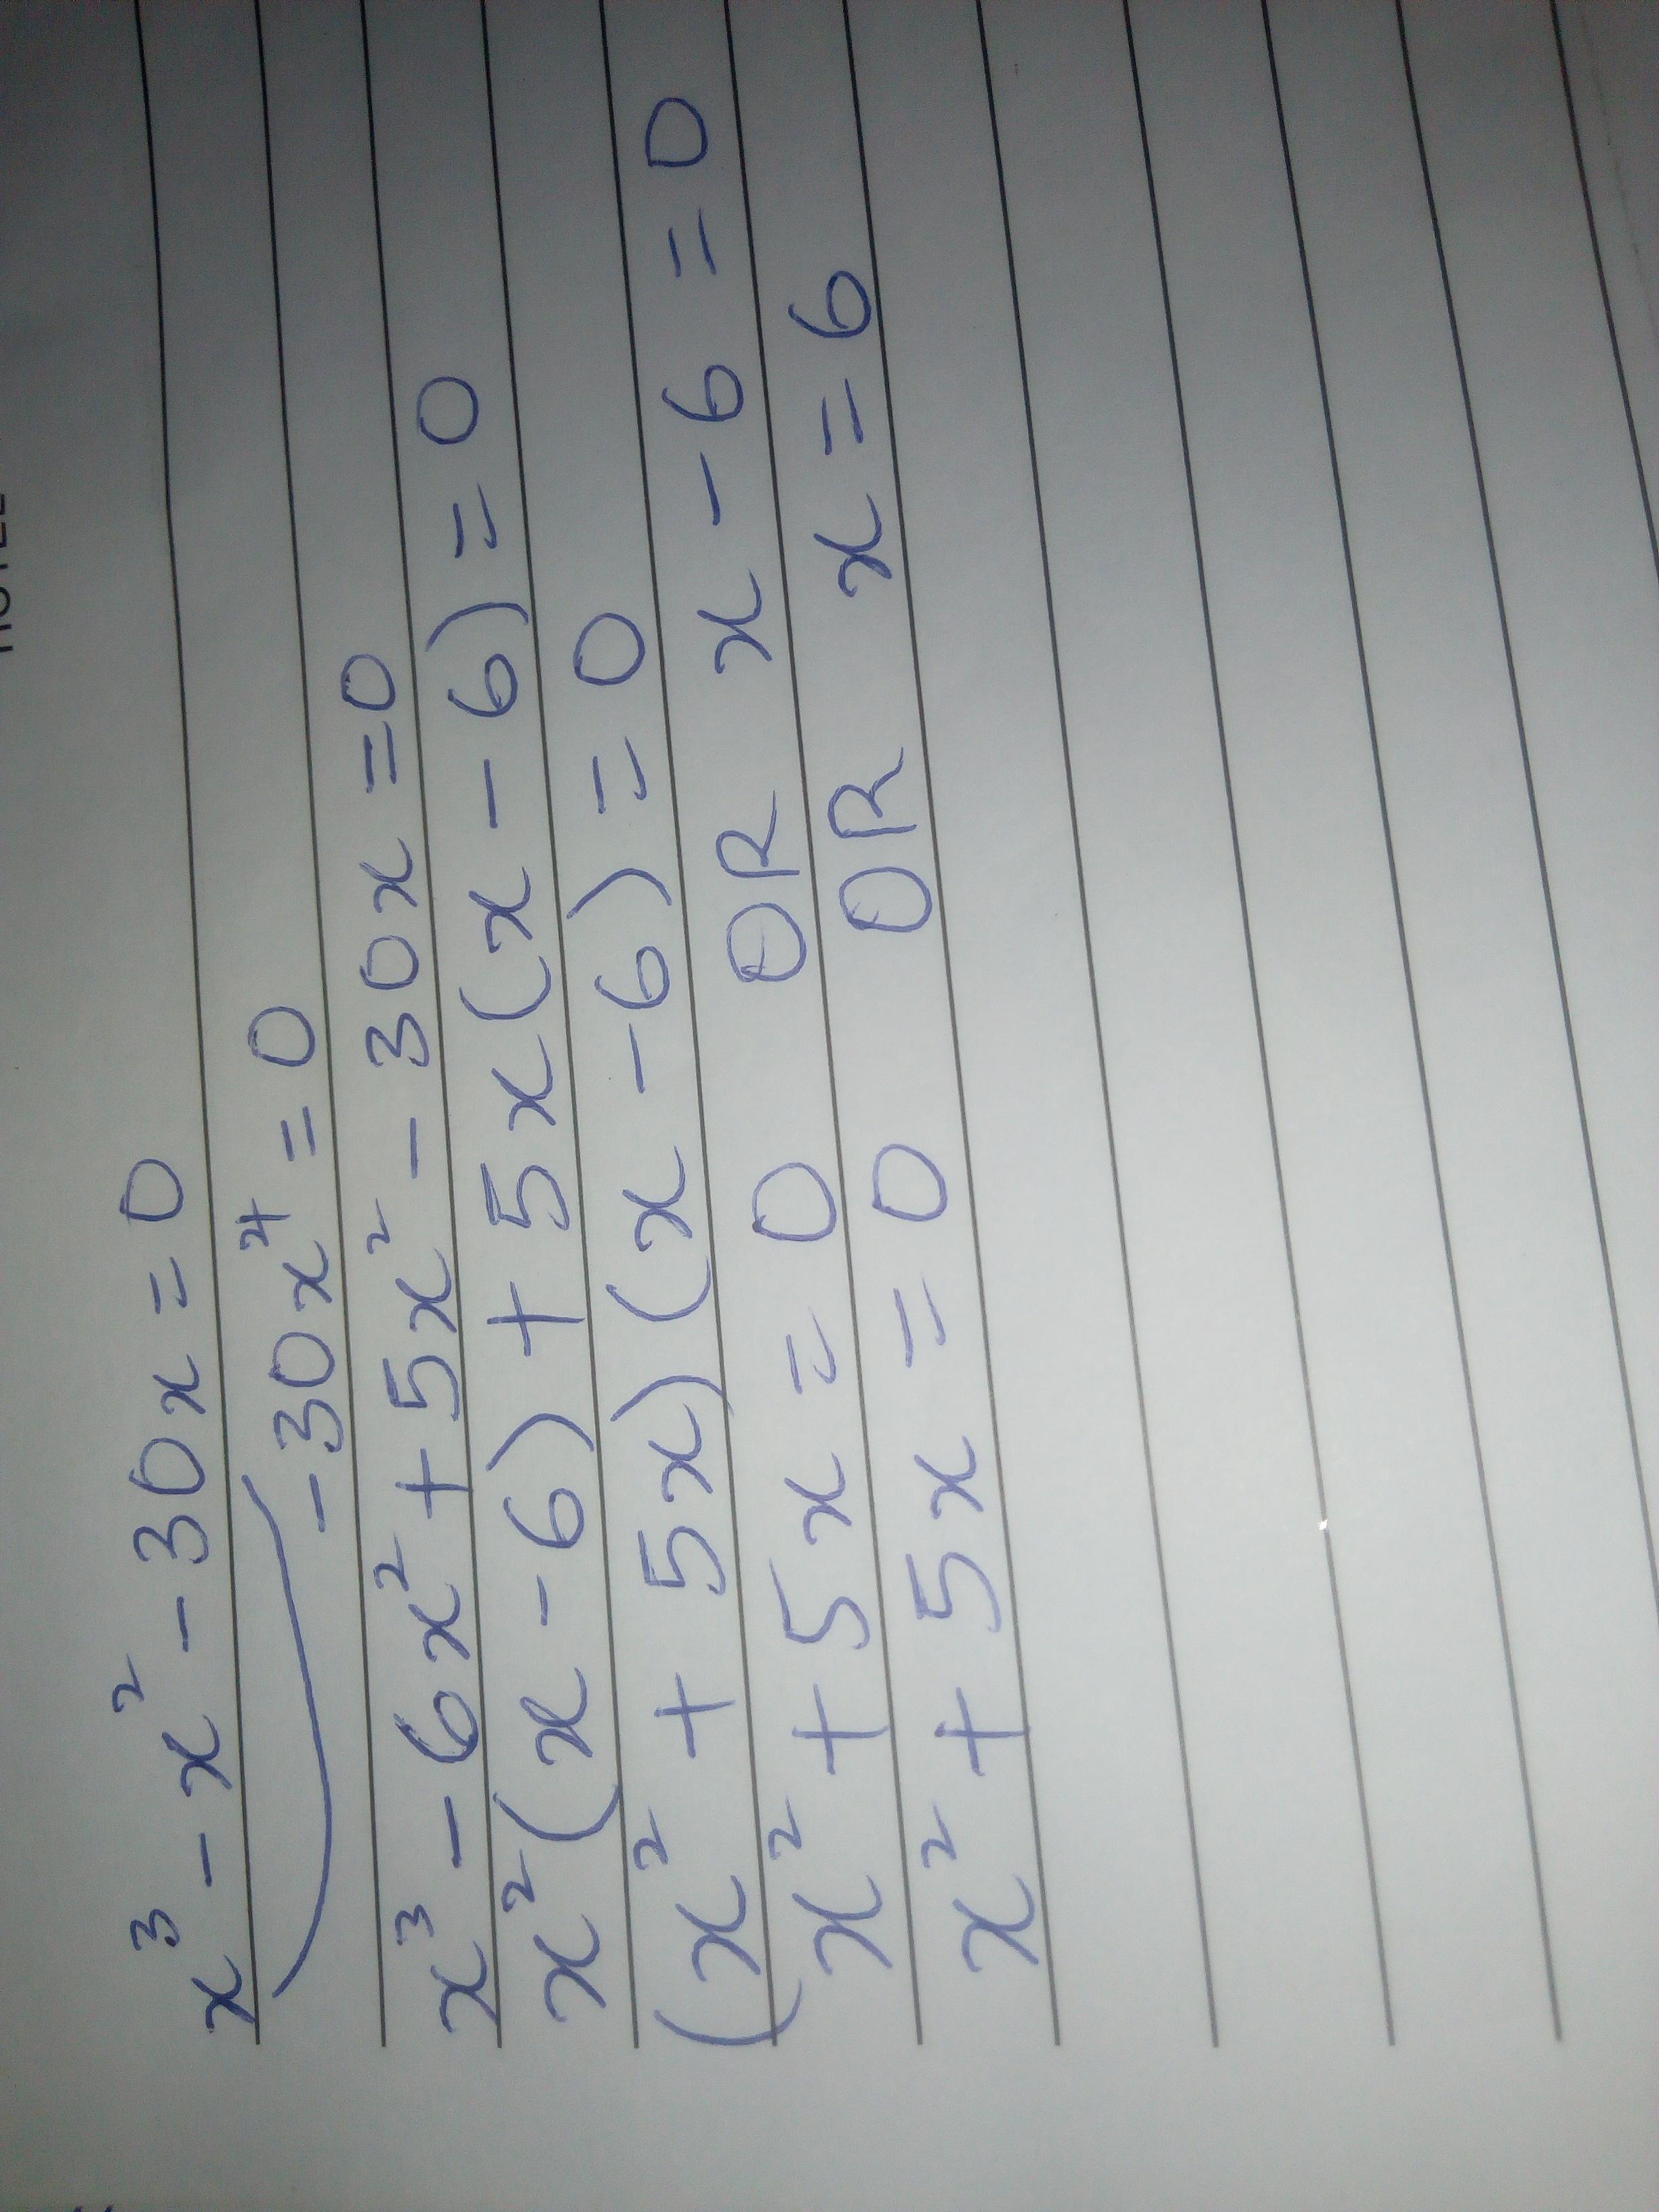 x³ - x² - 30x = 0
-30x⁴ = 0
x³ - 6x² + 5x² - 30x = 0
x²(x - 6) + 5x(x - 6) = 0
(x² + 5x)(x - 6) = 0
x² + 5x = 0 OR x - 6 = 0
x² + 5x = 0 OR x = 6